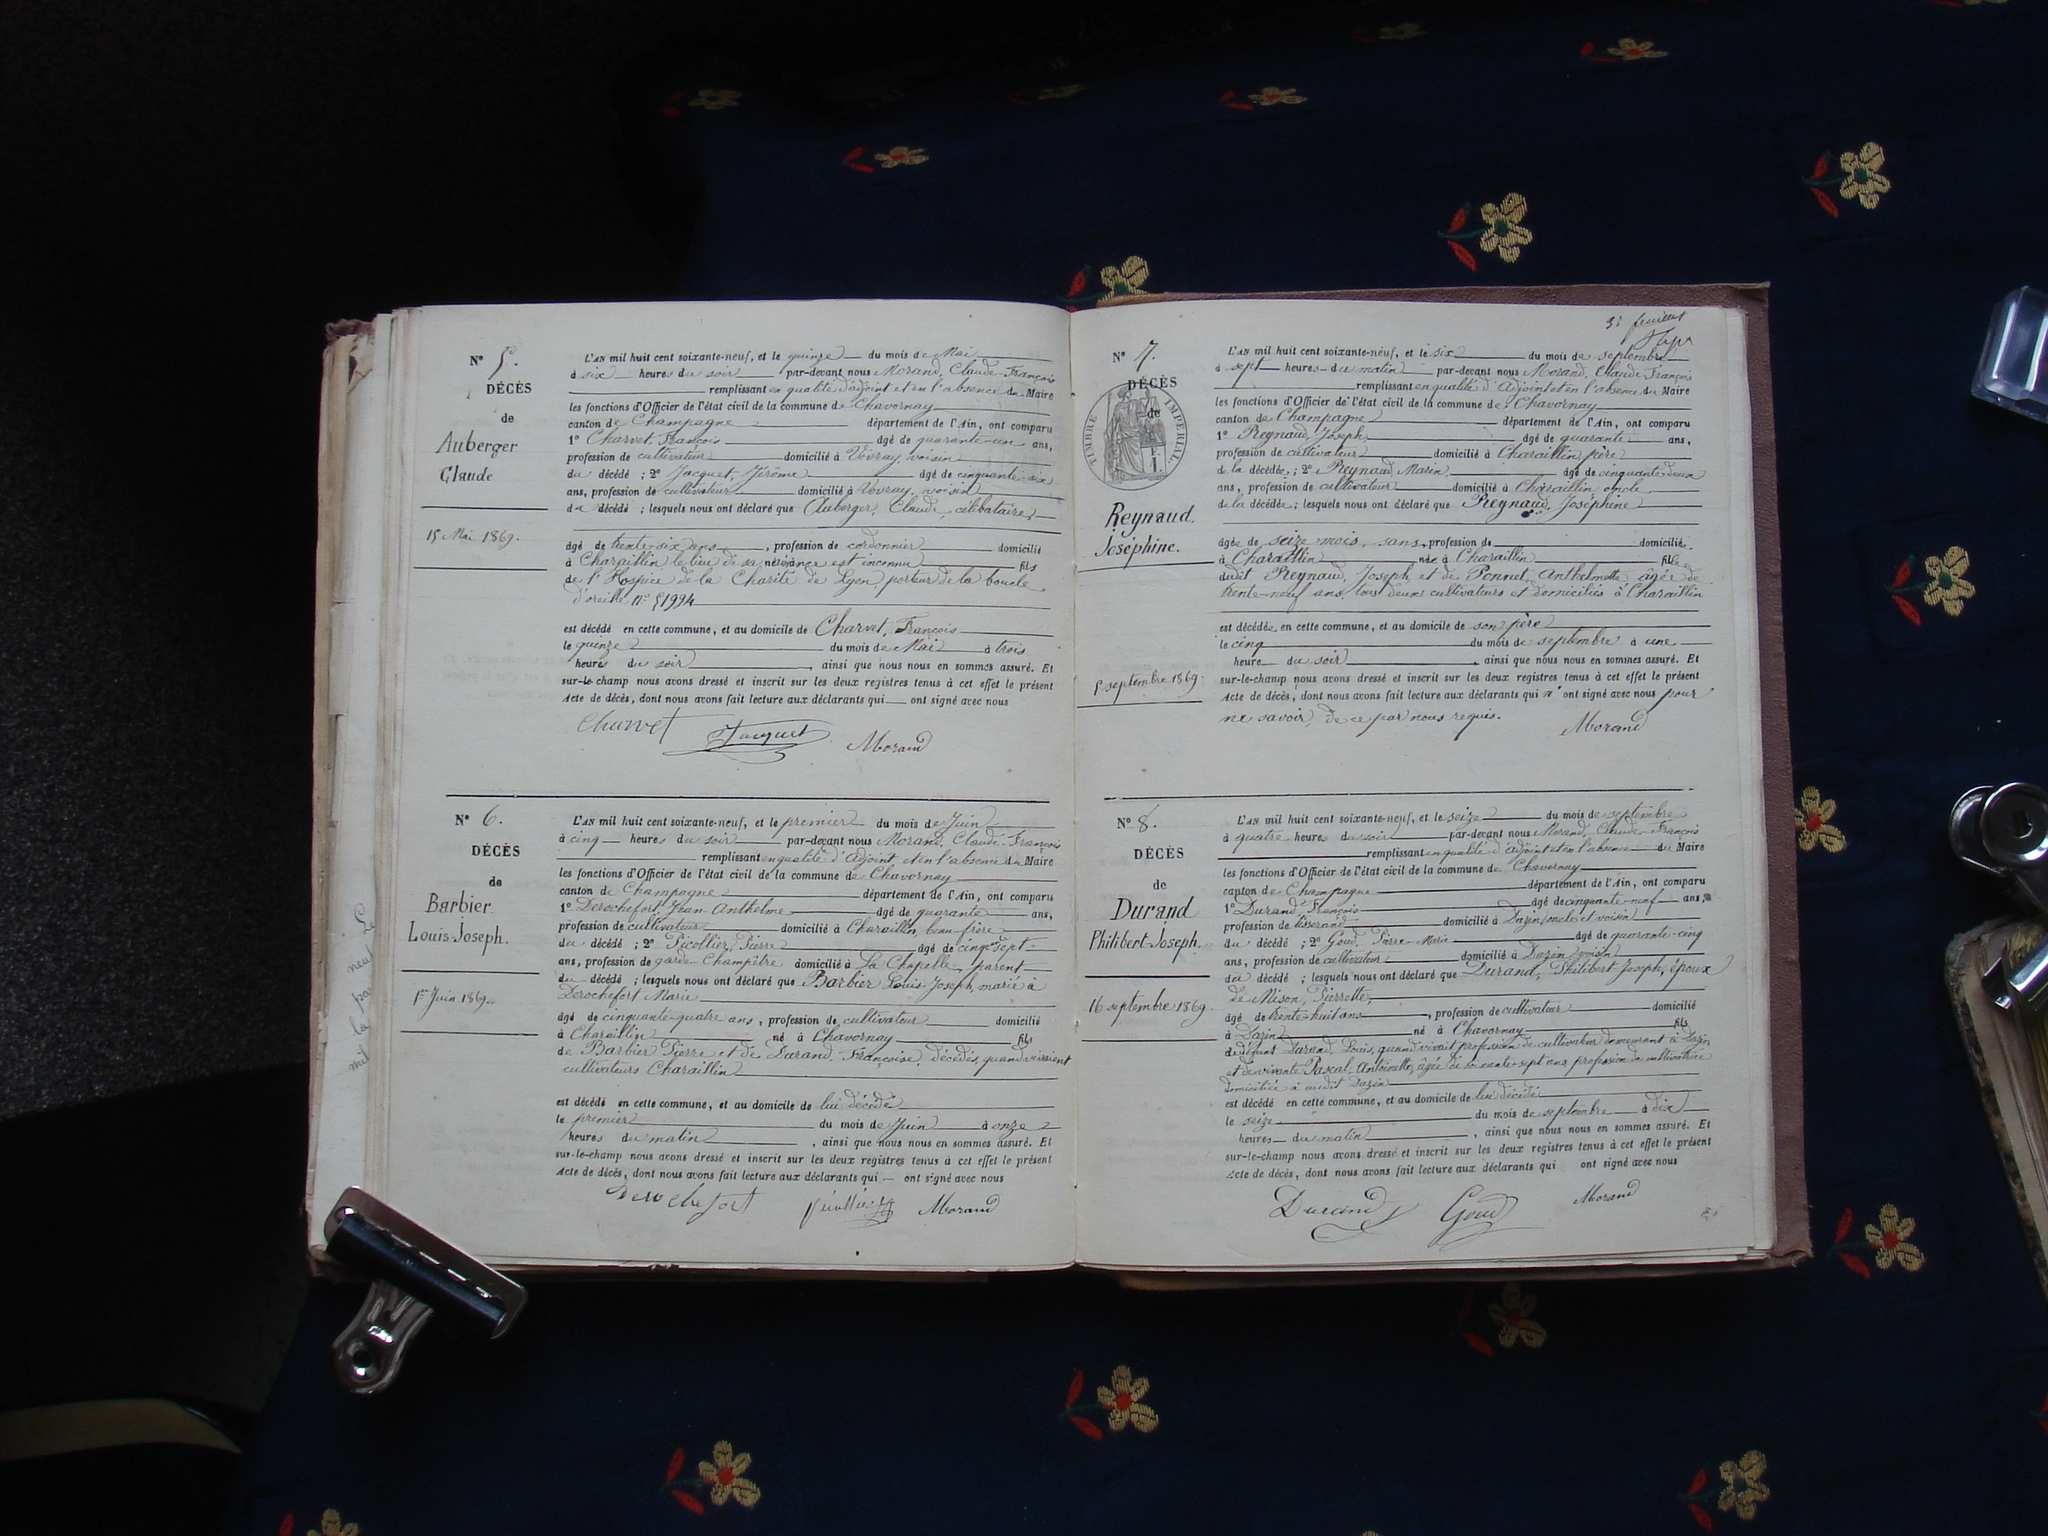 N° 5.
DÉCÈS
de
Auberger
Claude
15 Mai 1869.
L'AN mil huit cent soixante-neuf, et le quinze du mois de Mai
à six heures du soir par-devant nous Morand, Claude-François
remplissant en qualité d'adjoint et en l'absence du Maire
les fonctions d'Officier de l'état civil de la commune de Chavornay
canton de Champagne département de l'Ain, ont comparu
1° Charvet François âgé de quarante-un ans,
profession de cultivateur domicilié à Vovray, voisin
du décédé ; 2° Jacquet, Jérôme âgé de cinquante-six
ans, profession de cultivateur domicilié à Vovray, voisin
du décédé ; lesquels nous ont déclaré que Auberger, Claude, célibataire,
âgé de trente-six ans, profession de cordonnier domicilié
à Charaillin le lieu de sa naissance est inconnu fils
de l'Hospice de la Charité de Lyon, porteur de la boucle
d'oreille n° 51994
est décédé en cette commune, et au domicile de Charvet, François
le quinze du mois de Mai à trois
heures du soir, ainsi que nous nous en sommes assuré. Et
sur-le-champ nous avons dressé et inscrit sur les deux registres tenus à cet effet le présent
acte de décès, dont nous avons fait lecture aux déclarants qui — ont signé avec nous
Charvet Jacquet Morand
N° 6.
DÉCÈS
de
Barbier
Louis-Joseph.
1er Juin 1869.
L'AN mil huit cent soixante-neuf, et le premier du mois de Juin
à cinq heures du soir par-devant nous Morand, Claude-François
remplissant en qualité d'adjoint et en l'absence du Maire
les fonctions d'Officier de l'état civil de la commune de Chavornay
canton de Champagne département de l'Ain, ont comparu
1° Derochefort, Jean-Anthelme âgé de quarante ans,
profession de cultivateur domicilié à Charaillin, beau-frère
du décédé ; 2° Picollier, Pierre âgé de cinqte sept
ans, profession de garde-Champêtre domicilié à La Chapelle, parent
du décédé ; lesquels nous ont déclaré que Barbier Louis-Joseph, marié à
Derochefort Marie
âgé de cinquante-quatre ans, profession de cultivateur domicilié
à Charaillin né à Chavornay fils
de Barbier Pierre et de Durand, Françoise, décédés, quand vivaient
cultivateurs Charaillin
est décédé en cette commune, et au domicile de lui décédé
le premier du mois de Juin à onze
heures du matin, ainsi que nous nous en sommes assuré. Et
sur-le-champ nous avons dressé et inscrit sur les deux registres tenus à cet effet le présent
acte de décès, dont nous avons fait lecture aux déclarants qui — ont signé avec nous
Derochefort Picollier Morand
3e feuillet
N° 7.
DÉCÈS
de
TIMBRE IMPÉRIAL
Reynaud.
Joséphine.
5 septembre 1869.
L'AN mil huit cent soixante-neuf, et le six du mois de septembre
à sept heures du matin par-devant nous Morand, Claude François
remplissant en qualité d'Adjoint et en l'absence du Maire
les fonctions d'Officier de l'état civil de la commune de Chavornay
canton de Champagne département de l'Ain, ont comparu
1° Reynaud, Joseph âgé de quarante ans,
profession de cultivateur domicilié à Charaillin, père
de la décédée ; 2° Reynaud, Marin âgé de cinquante-deux
ans, profession de cultivateur domicilié à Charaillin oncle
de la décédée ; lesquels nous ont déclaré que Reynaud, Joséphine
âgée de seize mois, sans profession de domiciliée
à Charaillin née à Charaillin fille
dudit Reynaud, Joseph et de Ponnet, Anthelmette, âgée de
trente-neuf ans, tous deux cultivateurs et domiciliés à Charaillin
est décédée en cette commune, et au domicile de son père
le cinq du mois de septembre à une
heure du soir, ainsi que nous nous en sommes assuré. Et
sur-le-champ nous avons dressé et inscrit sur les deux registres tenus à cet effet le présent
acte de décès, dont nous avons fait lecture aux déclarants qui n'ont signé avec nous pour
ne savoir, de ce par nous requis. Morand
N° 8.
DÉCÈS
de
Durand
Philibert-Joseph.
16 septembre 1869.
L'AN mil huit cent soixante-neuf, et le seize du mois de septembre
à quatre heures du soir par-devant nous Morand, Claude-François
remplissant en qualité d'adjoint et en l'absence du Maire
les fonctions d'Officier de l'état civil de la commune de Chavornay
canton de Champagne département de l'Ain, ont comparu
1° Durand, François âgé de cinquante-neuf ans,
profession de tisserand domicilié à Dazin, oncle et voisin
du décédé ; 2° Goud, Pierre-Marie âgé de quarante-cinq
ans, profession de cultivateur domicilié à Dazin, voisin
du décédé ; lesquels nous ont déclaré que Durand, Philibert Joseph, époux
de Mison, Pierrette,
âgé de trente-huit ans, profession de cultivateur domicilié
à Dazin né à Chavornay fils
de défunt Durand, Louis, quand vivait profession de cultivateur demeurant à Dazin
et de vivante Pascal, Antoinette, âgée de soixante-sept ans profession de cultivatrice
domiciliée à audit Dazin
est décédé en cette commune, et au domicile de lui décédé
le seize du mois de septembre à dix
heures du matin, ainsi que nous nous en sommes assuré. Et
sur-le-champ nous avons dressé et inscrit sur les deux registres tenus à cet effet le présent
acte de décès, dont nous avons fait lecture aux déclarants qui ont signé avec nous
Durand Goud Morand